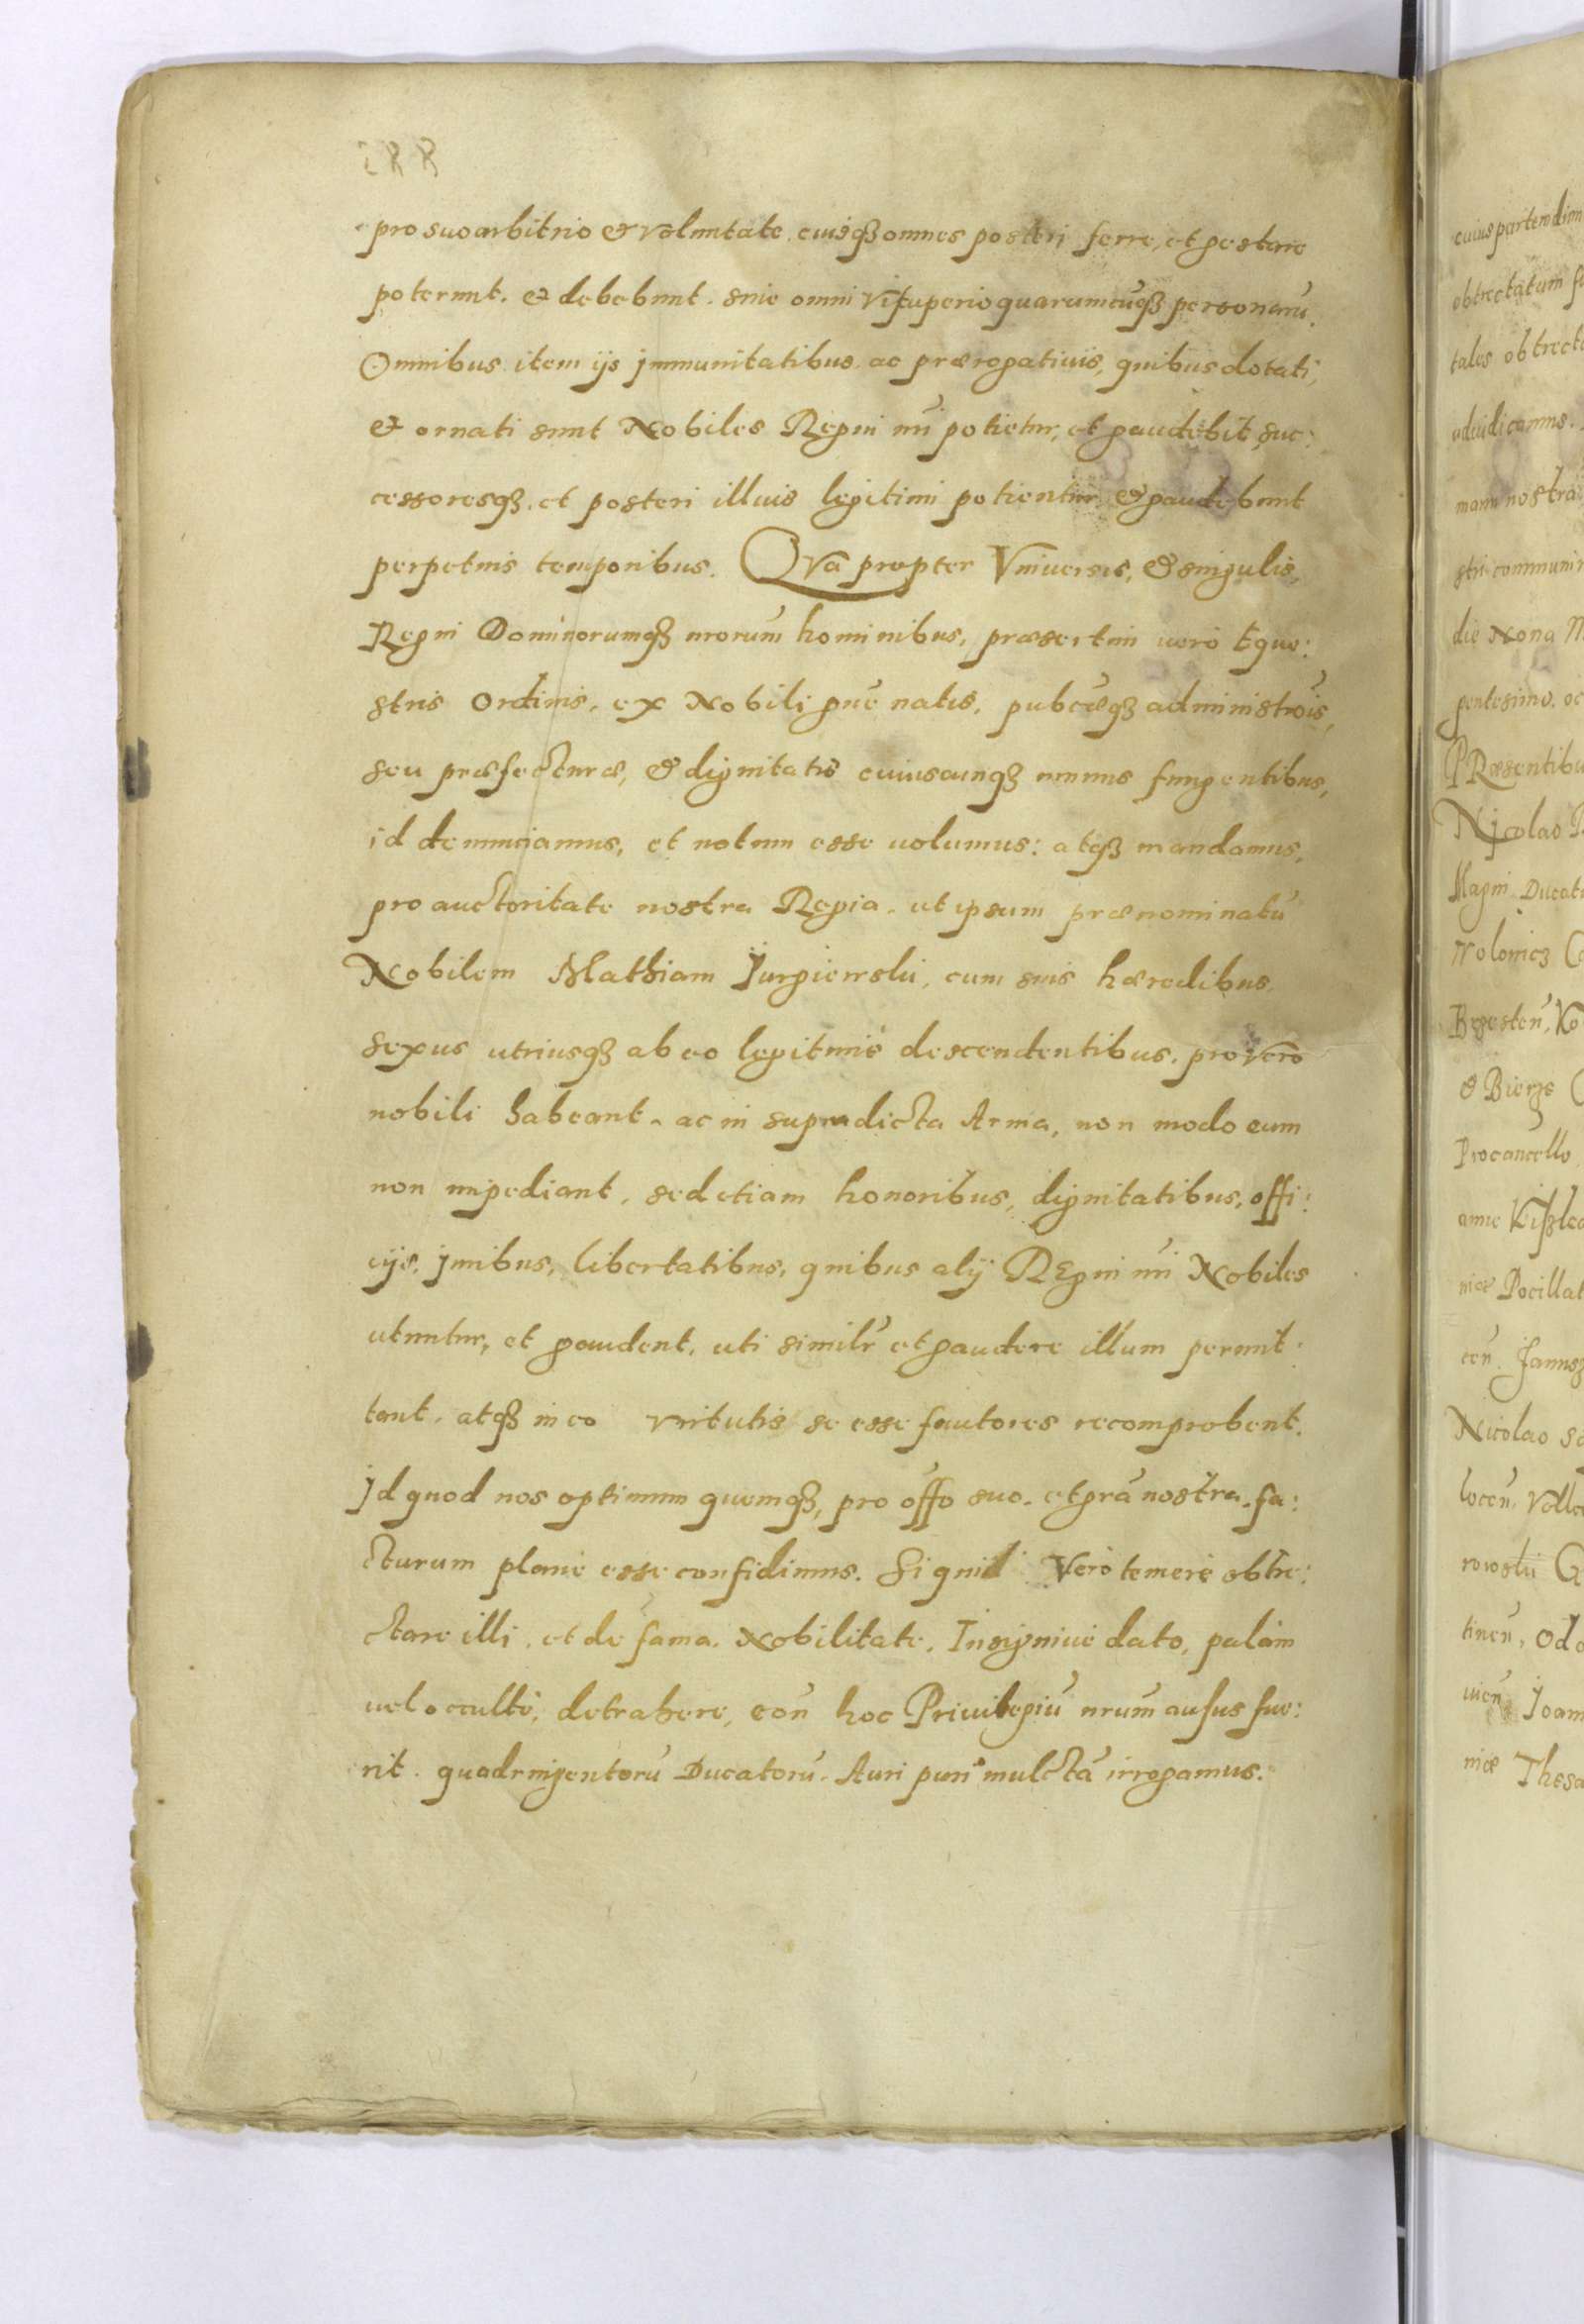 pro suo arbitrio & voluntate. eiusq̃ omnes posteri ferre, et gestare
poterunt. & debebunt. sine omni vituperio quarumcũq̃ personarũ.
Omnibus item ijs jmmunitatibus ac prærogatiuis, quibus dotati,
& ornati sunt Nobiles Regni nr̃i potietur, et gaudebit, suc:
cessoresq̃. et posteri illius legitimi potientur & gaudebunt
perpetuis temporibus. Qva propter Vniuersis, & singulis,
Regni Dominorumq̃ nrorum̃ hominibus, præsertim uerò Eque:
stris Ordinis, ex Nobili gñe natis, publcæq̃ administrõis,
seu præfecturæ, & dignitatis cuiuscunq̃ munus fungentibus,
id denunciamus, et notum esse uolumus: atq̃ mandamus,
pro auctoritate nostra Regia. ut ipsum prænominatũ
Nobilem Mathiam Jurgiewski, cum suis hæredibus
sexus utriusq̃ ab eo legitimè descendentibus, pro vero
nobili habeant. ac in supradicta Arma, non modo eum
non impediant, sed etiam honoribus, dignitatibus, offi:
cijs, juribus, libertatibus, quibus alij Regni nr̃i Nobiles
utuntur, et gaudent, uti similr̃ et gaudere illum permit:
tant. atq̃ in eo virtutis se esse fautores recomprobent.
Jd quod nos optimum quemq̃, pro offõ suo. et grã nostra. fa:
cturum planè esse confidimus. Si quid Verò temerè obtre:
ctare illi, et de fama. Nobilitate, Insigniue dato, palàm
uel occultè, detrahere, con̄ hoc Priuilegiũ nrum̃ ausus fue:
rit. quadringentorũ Ducatorũ. Auri puri mulctã irrogamus.
cuius partem dim
obtrectatum
tales obtrect
adiudicamus.
manu nostra
stri communir
die Nona
gentesimo. oc
PRæsentibu
Nicolao
Magni Ducat
&
Procancello
niæ Pocillat
Nicolao
Joan
niæ Thesa